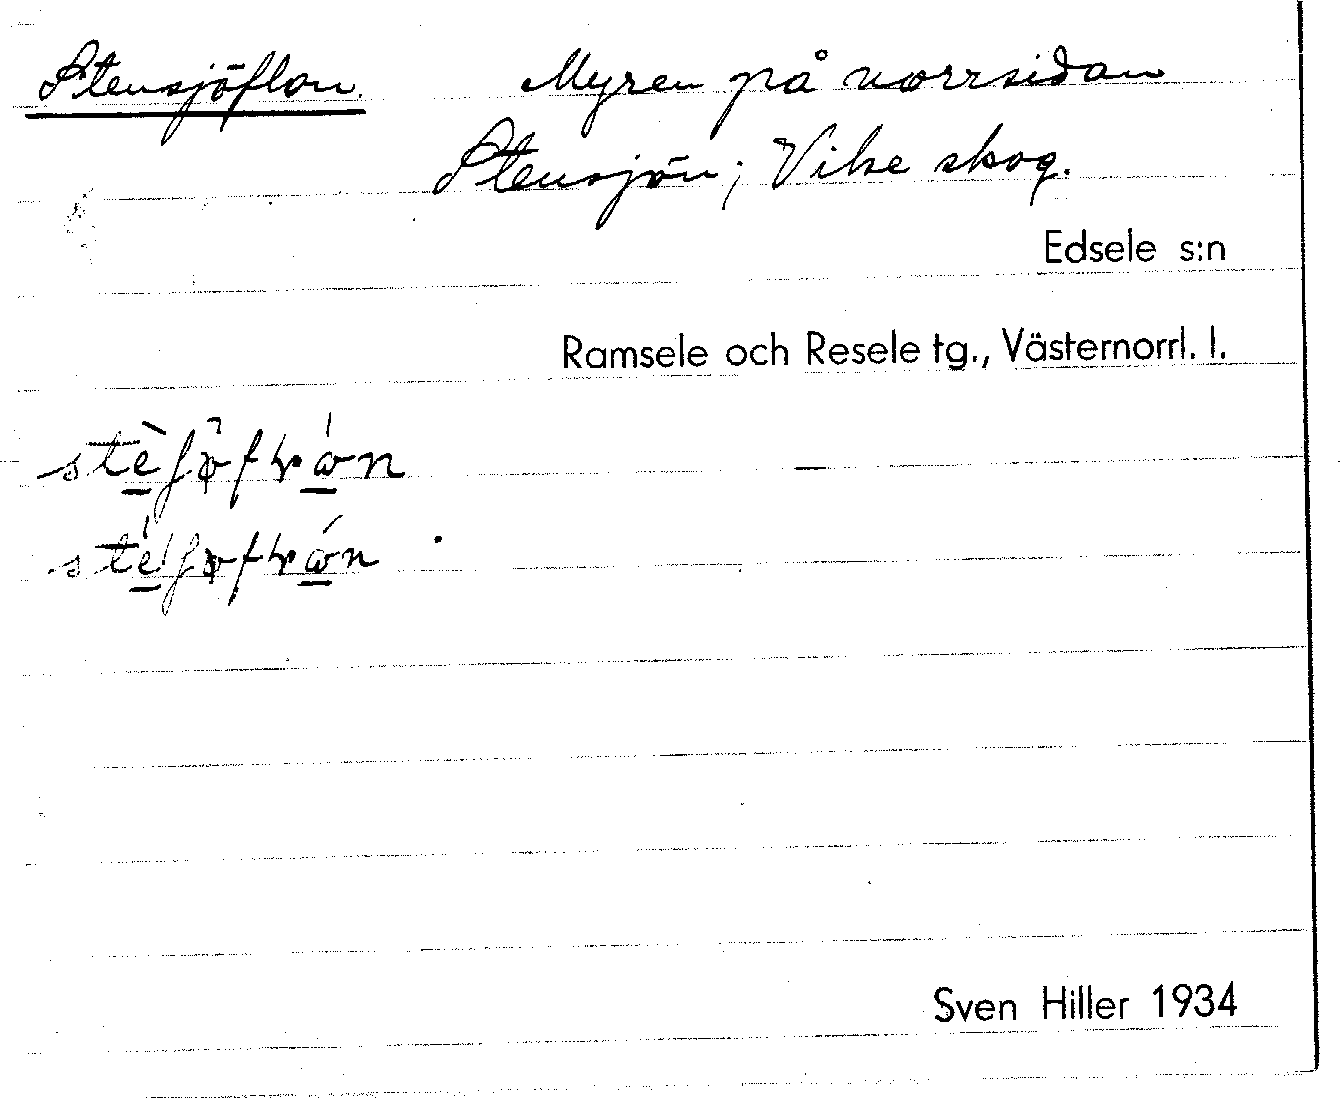 Stensjöflon. Myren på norrsidan
Stensjön; Vike skog.
Edsele s:n
Ramsele och Resele tg., Västernorrl. l.
Sven Hiller 1934